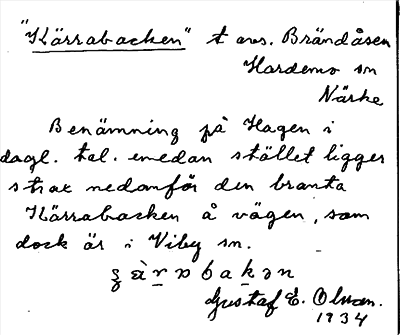 "Kärrabacken" t avs. Brändåsen
Hardemo sn
Närke
Benämning på Hagen i
dagl. tal. emedan stället ligger
strax nedanför den branta
Kärrabacken å vägen, som
dock är i Viby sn.
Gustaf E. Olsson.
1934